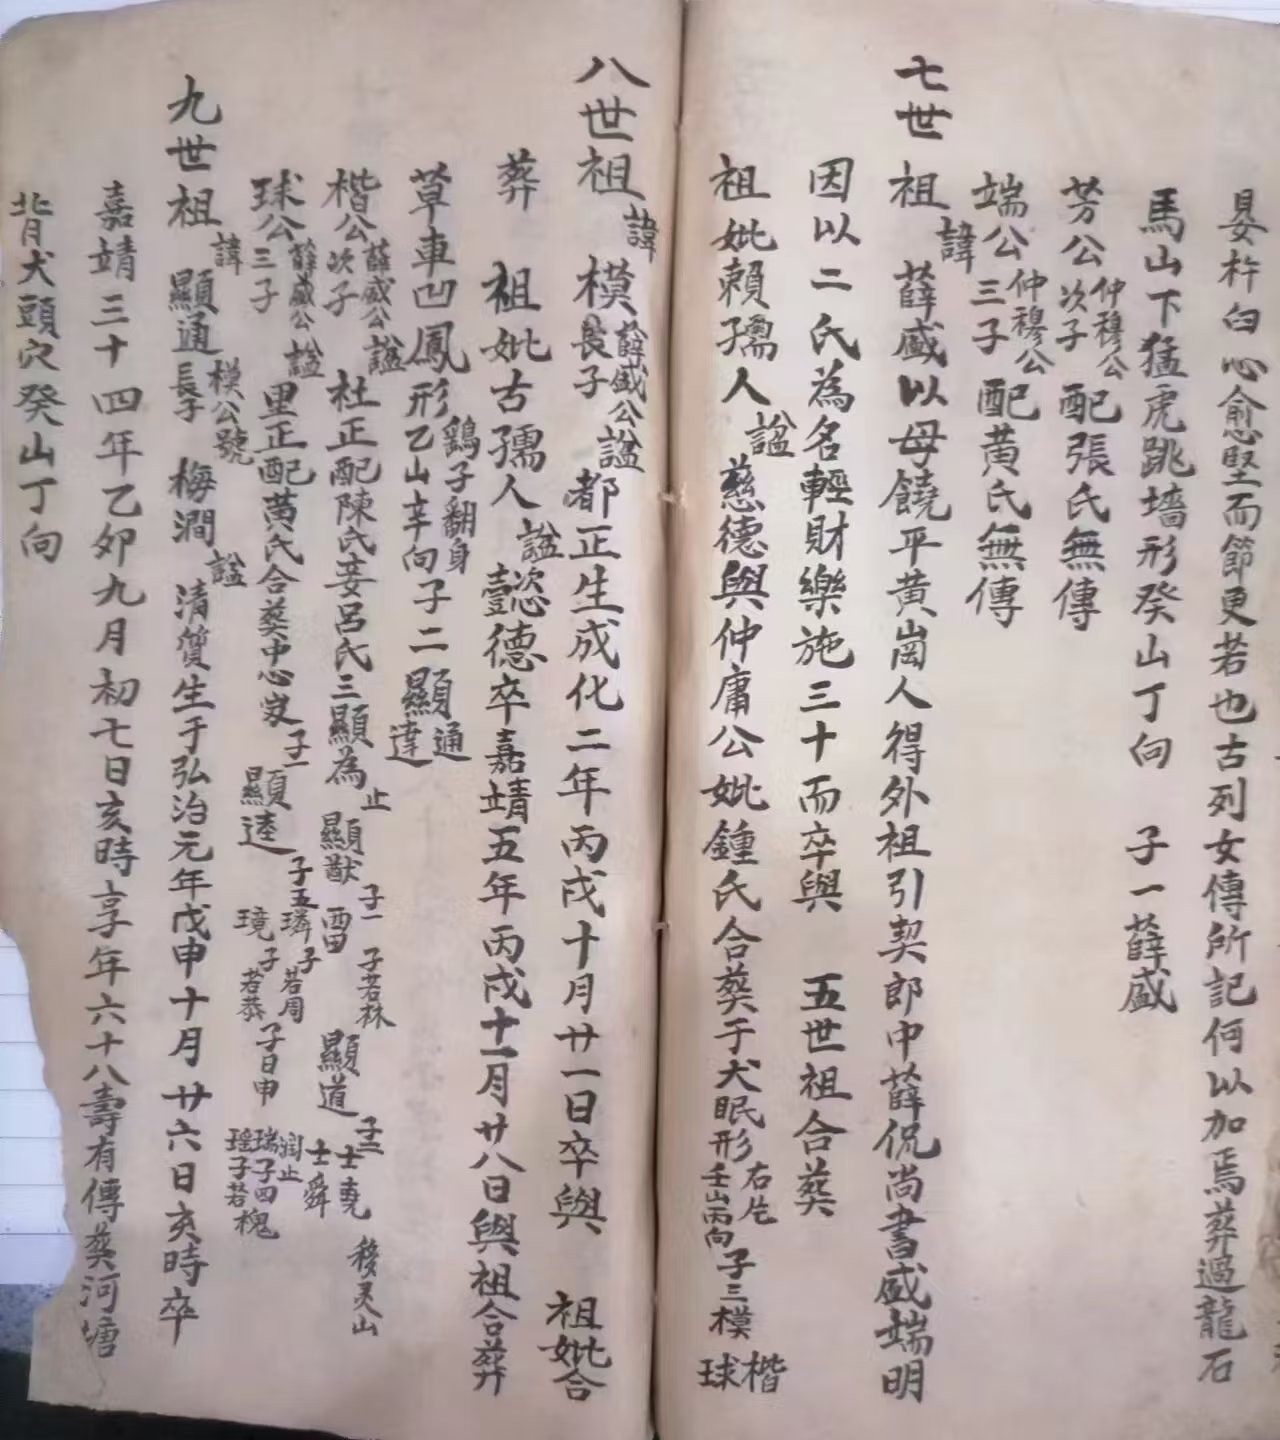 晏杵臼心愈堅而節更若也古列女傳所記何以加焉葬過龍石
馬山下猛虎跳墻形癸山丁向 子一薛盛
芳公仲穆公次子配張氏無傳
端公仲穆公三子配黄氏無傳
七世祖諱薛盛以母饒平黄崗人得外祖引契郎中薛侃尚書盛端明
因以二氏為名輕財樂施三十而卒與 五世祖合葬
祖妣賴孺人諡慈德與仲庸公妣鍾氏合葬于犬眠形右片壬山丙向子三模楷球
八世祖諱模薛盛公長子諡都正生成化二年丙戌十月廿一日卒與 祖妣合
葬 祖妣古孺人諡懿德卒嘉靖五年丙戌十一月廿八日與祖合葬
草車凹鳳形鷄子翻身乙山辛向子二顯通達
楷公薛盛公次子諡杜正配陳氏妾呂氏三顯為止顯猷子一雷子若林顯道子二士堯士舜移灵山
球公薛盛公三子諡里正配黄氏合葬中心崠子一顯逵子五璘子若周璄子若恭子日申瑞子四瑶子若槐潤止
九世祖諱顯通模公長子號梅澗諡清質生于弘治元年戊申十月廿六日亥時卒
嘉靖三十四年乙卯九月初七日亥時享年六十八壽有傳葬河塘
背犬頭穴癸山丁向